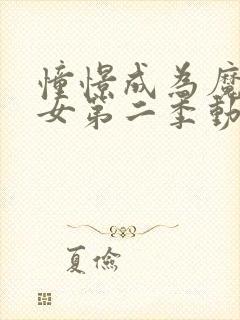 憧憬成为魔
女第二季動
夏儉